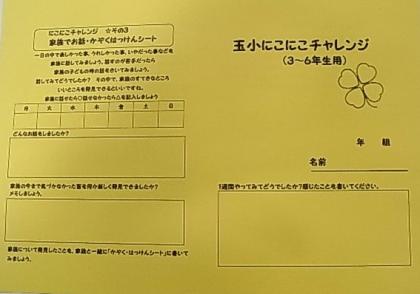 にこにこチャレンジ ☆その3
家族でお話・かぞくはっけんシート
一日の中で楽しかった事、うれしかった事、いやだった事などを
家族に話してみましょう。話すのが苦手だったら
家族の子どもの時の話をきいてみましょう。
話してみてどうでしたか? その中で、家族のすてきなところ
いいところを発見できるといいですね。
家族に話せたら○話せなかったら△を記入しましょう
月 火 水 木 金 土 日
どんなお話をしましたか?
家族の今まで気づかなかった面を何か新しく発見できましたか?
メモしましょう。
家族について発見したことを、家族と一緒に「かぞく・はっけんシート」に書いて
みましょう。
玉小にこにこチャレンジ
(3~6年生用)
年 組
名前
1週間やってみてどうでしたか?感じたことを書いてください。